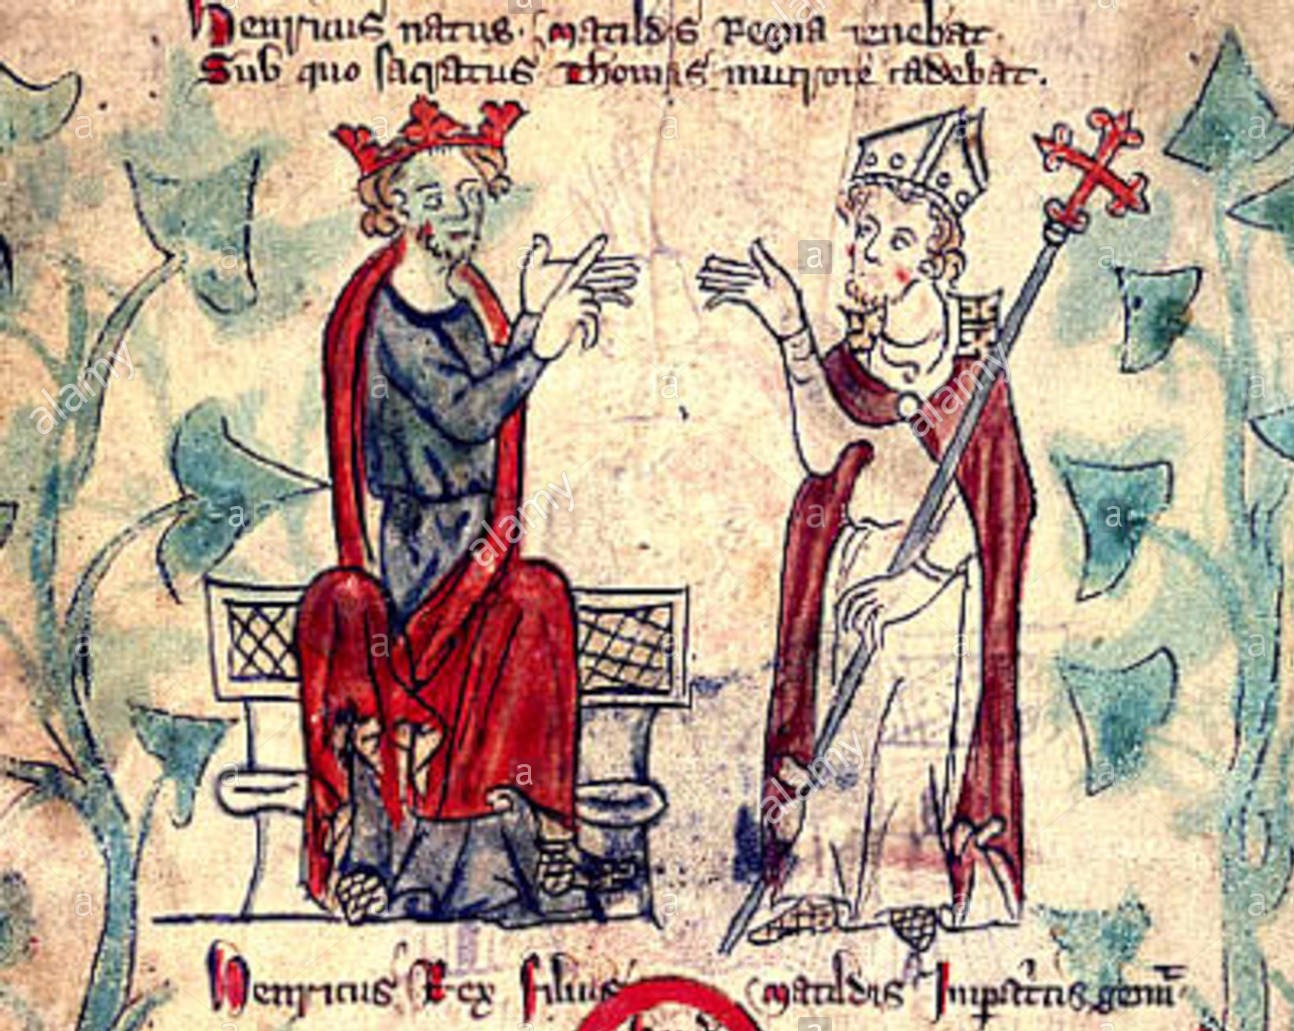 Henricus natus Matildis Regna tenebat.
Sub quo sacratus Thomas mucrone cadebat.
Henricus Rex filius Matildis Impatricis
alamy
alamy
alamy
alamy
alamy